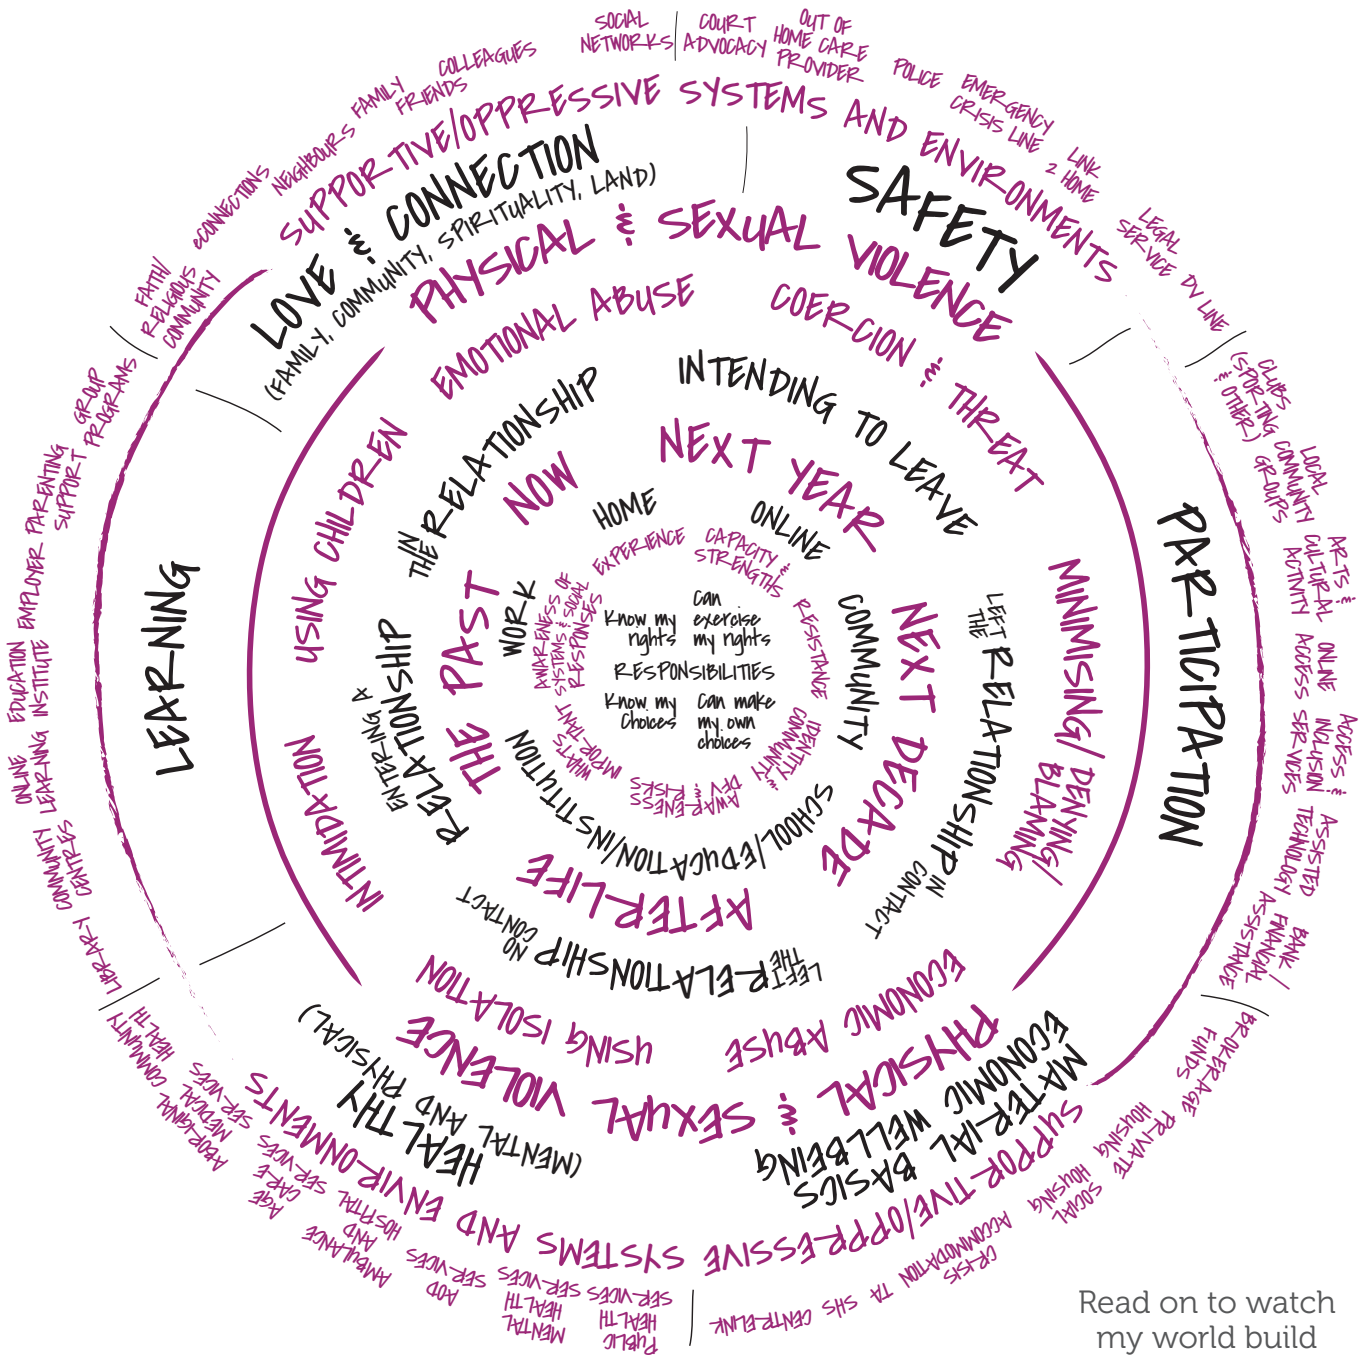 SOCIAL
NETWORKS
COURT
ADVOCACY
OUT OF
HOME CARE
PROVIDER
POLICE
EMERGENCY
CRISIS LINE
LINK
2 HOME
LEGAL
SERVICE
DV LINE
CLUBS
(SPORTING
& OTHER)
LOCAL
COMMUNITY
GROUPS
ARTS &
CULTURAL
ACTIVITY
ONLINE
ACCESS
ACCESS &
INCLUSION
SERVICES
ASSISTED
TECHNOLOGY
BANK /
FINANCIAL
ASSISTANCE
BROKERAGE
FUNDS
PRIVATE
HOUSING
SOCIAL
HOUSING
CRISIS
ACCOMMODATION
TA
SHS
CENTRELINK
PUBLIC
HEALTH
SERVICES
MENTAL
HEALTH
SERVICES
AOD
SERVICES
AMBULANCE
AND
HOSPITAL
AGE
CARE
SERVICES
ABORIGINAL
MEDICAL
SERVICES
COMMUNITY
HEALTH
LIBRARY
COMMUNITY
CENTRES
ONLINE
LEARNING
EDUCATION
INSTITUTE
EMPLOYER
PARENTING
SUPPORT
GROUP
PROGRAMS
FAITH/
RELIGIOUS
COMMUNITY
eCONNECTIONS
NEIGHBOURS
FAMILY
FRIENDS
COLLEAGUES
SUPPORTIVE/OPPRESSIVE SYSTEMS AND ENVIRONMENTS
SUPPORTIVE/OPPRESSIVE SYSTEMS AND ENVIRONMENTS
LOVE & CONNECTION
(FAMILY, COMMUNITY, SPIRITUALITY, LAND)
SAFETY
PARTICIPATION
MATERIAL BASICS
ECONOMIC WELLBEING
HEALTHY
(MENTAL AND PHYSICAL)
LEARNING
PHYSICAL & SEXUAL VIOLENCE
PHYSICAL & SEXUAL VIOLENCE
EMOTIONAL ABUSE
COERCION & THREAT
MINIMISING/ DENYING/
BLAMING
ECONOMIC ABUSE
USING ISOLATION
INTIMIDATION
USING CHILDREN
IN
THE RELATIONSHIP
INTENDING TO LEAVE
LEFT
THE RELATIONSHIP IN
CONTACT
LEFT
THE RELATIONSHIP NO
CONTACT
ENTERING A
RELATIONSHIP
NOW
NEXT YEAR
NEXT DECADE
AFTER-LIFE
THE PAST
HOME
ONLINE
COMMUNITY
SCHOOL/EDUCATION/INSTITUTION
WORK
EXPERIENCE
CAPACITY &
STRENGTHS
RESISTANCE
IDENTITY &
COMMUNITY
AWARENESS
DFV & RISKS
WHATS
IMPORTANT
AWARENESS OF
SYSTEMS & SOCIAL
RESPONSES
Know my
rights
can
exercise
my rights
RESPONSIBILITIES
Know my
Choices
Can make
my own
choices
Read on to watch
my world build